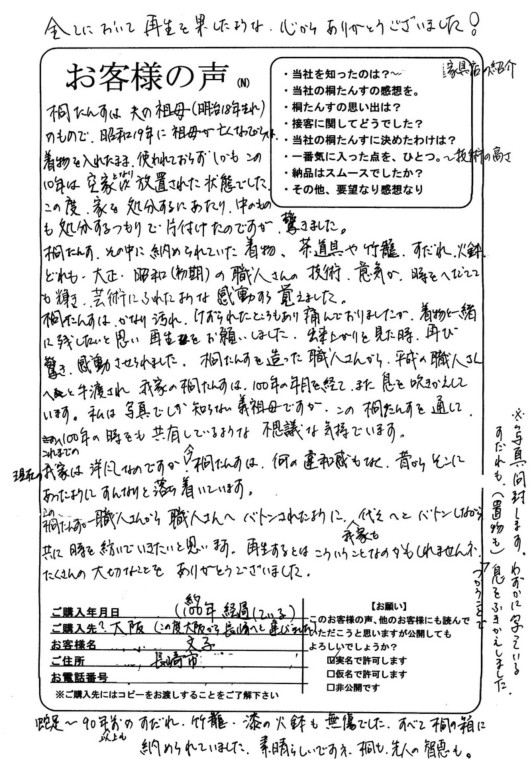 全てにおいて再生を果したような、心からありがとうございました!
お客様の声(N)
・当社を知ったのは?〜 家具店の紹介
・当社の桐たんすの感想を。
・桐たんすの思い出は?
・接客に関してどうでした?
・当社の桐たんすに決めたわけは?
・一番気に入った点を、ひとつ。〜技術の高さ
・納品はスムースでしたか?
・その他、要望なり感想なり
桐たんすは夫の祖母(明治18年生れ)
のもので、昭和19年に祖母が亡くなってからは
着物を入れたまま、使われておらずしかもこの
10年は空家となり放置された状態でした。
この度、家を処分するにあたり、中のもの
も処分するつもりで片付けたのですが、驚きました。
桐たんす、その中に納められていた着物、茶道具や竹籠、すだれ、火鉢
どれも、大正・昭和(初期)の職人さんの技術、意気が、時をへだてて
も輝き、芸術にふれたような感動する覚えました。
桐たんすは、かなり汚れ、けずられたところもあり痛んでおりましたが、着物と一緒
に残したいと思い再生をお願いしました。出来上がりを見た時、再び
驚き、感動させられました。桐たんすを造った職人さんから、平成の職人さん
へと手渡され我家の桐たんすは、100年の年月を経て、また息を吹きかえして
います。私は写真でしか知らない義祖母ですが、この桐たんすを通して、
100年の時をも共有しているような不思議な気持でいます。
現在の我家は洋風なのですが これまでの桐たんすは、何の違和感もなく、昔からそこに
あったようにすんなりと落ち着いています。
この桐たんすが職人さんから職人さんへバトンされたように、我家も代々へとバトンしながら
共に時を紡いでいきたいと思います。再生するとはこういうことなのかもしれませんネ。
たくさんの大切なことをありがとうございました。
※写真同封します。わずかに写っている
すだれも(置物も)息をふきかえしました。
ご購入年月日 (約100年経過している)
ご購入先? 大阪(この度大阪から長崎へと運びました)
お客様名 文子
ご住所 長崎市
お電話番号
※ご購入先にはコピーをお渡しすることをご了解下さい
【お願い】
このお客様の声、他のお客様にも読んで
いただこうと思いますが公開しても
よろしいでしょうか?
☑実名で許可します
□仮名で許可します
□非公開です
蛇足〜90年以上も前のすだれ・竹籠・漆の火鉢も無傷でした。すべて桐の箱に
納められていました。素晴らしいですネ、桐も、先人の智恵も。